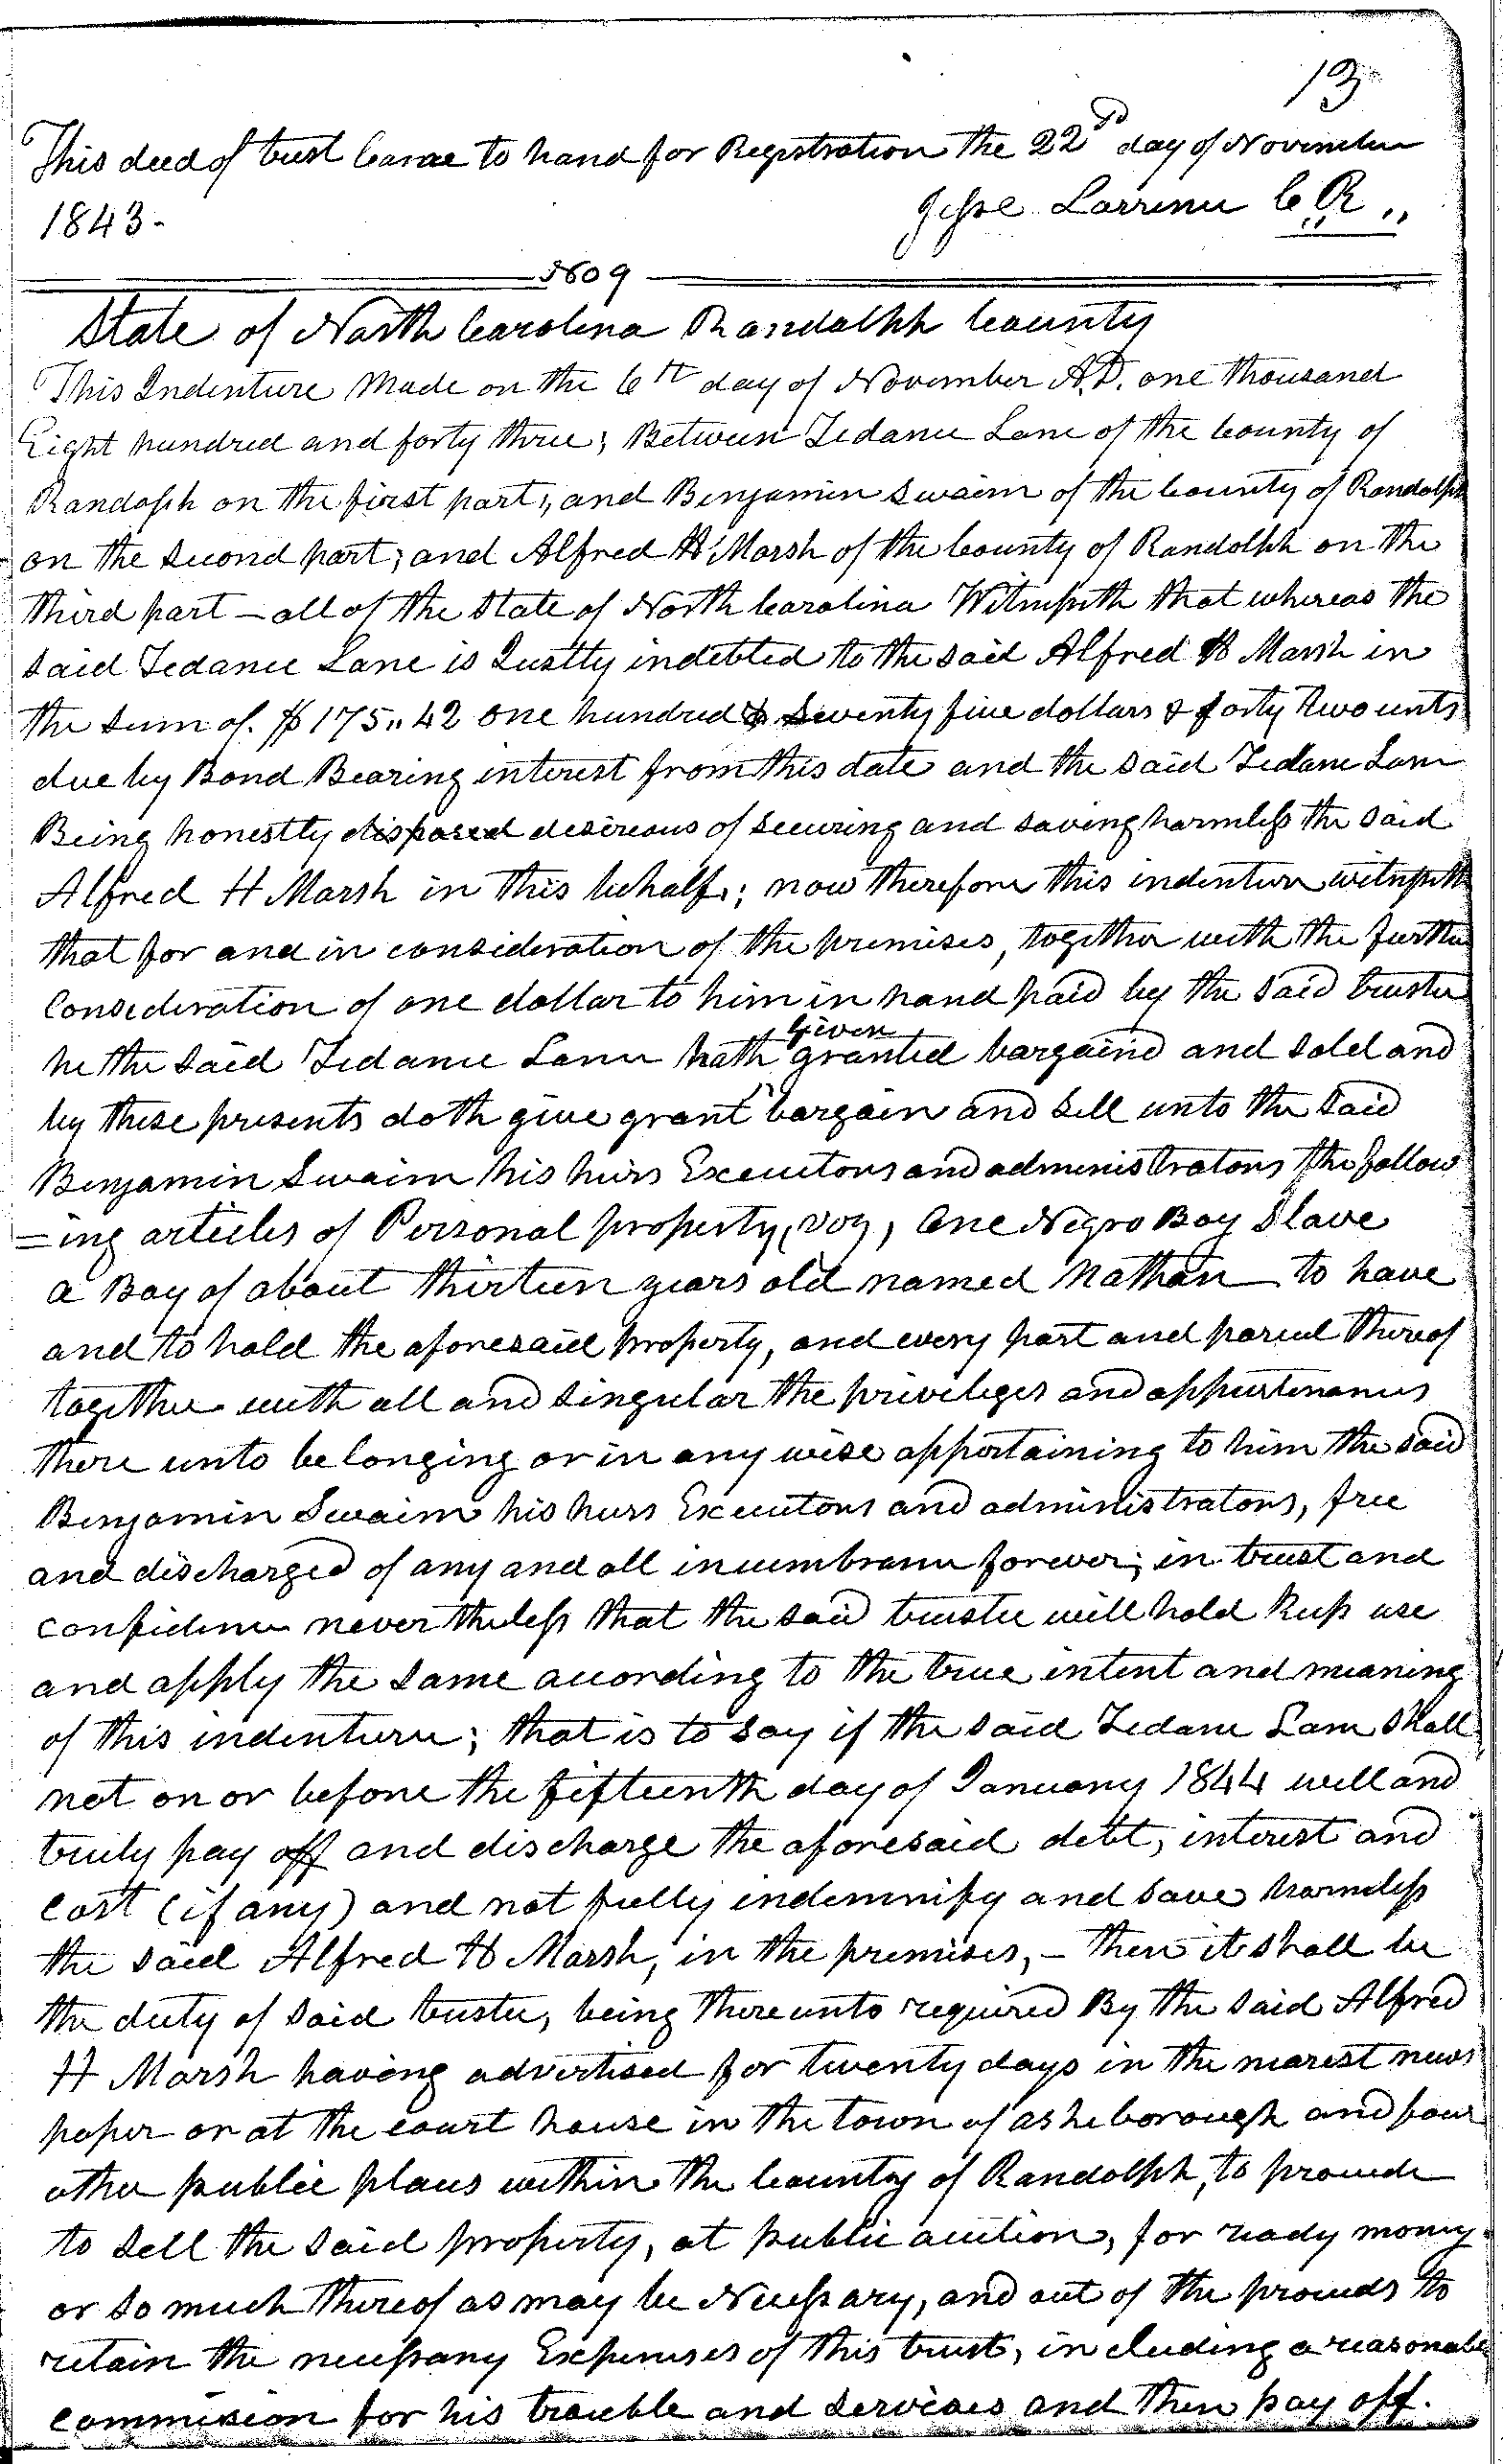 13
This deed of trust came to hand for Registration the 22nd day of November
1843.
Jesse Larrence C.R.,,
5609
State of North Carolina Randolph County
This Indenture Made on the 6th day of November A.D. one thousand
Eight hundred and forty three; Between Tedance Lane of the County of
Randolph on the first part; and Benjamin Swaim of the County of Randolph
on the second part; and Alfred H Marsh of the County of Randolph on the
third part – all of the State of North Carolina Witnesseth that whereas the
said Tedance Lane is Justly indebted to the said Alfred H Marsh in
the sum of. $175.,42 one hundred & Seventy five dollars & forty two cents
due by Bond Bearing interest from this date and the said Tedance Lane
Being honestly disposed desireous of securing and saving harmless the said
Alfred H Marsh in this behalf; now therefore this indenture witnesseth
that for and in consideration of the premises, together with the further
Consideration of one dollar to him in hand paid by the said trustee
he the said Tedance Lane hath Given granted bargaind and sold and
by these presents doth give grant bargain and sell unto the said
Benjamin Swaim his heirs Executors and administrators the follow
=ing articles of Personal property, voz, One Negro Boy Slave
a Boy of about thirteen years old named Nathan – to have
and to hold the aforesaid property, and every part and parcel thereof
together with all and singular the privileges and appurtenances
there unto belonging or in any wise appertaining to him the said
Benjamin Swaim his heirs Executors and administrators, free
and discharged of any and all incumbrance forever; in trust and
confidence never theless that the said trustee will hold keep use
and apply the same according to the true intent and meaning
of this indenture; that is to say if the said Tedance Lane shall
not on or before the fifteenth day of January 1844 well and
truly pay off and discharge the aforesaid debt, interest and
cost (if any) and not fully indemnify and save harmless
the said Alfred H Marsh, in the premises, – then it shall be
the duty of said trustee, being there unto required By the said Alfred
H Marsh having advertised for twenty days in the nearest news
paper or at the court house in the town of asheborough and four
other public places within the County of Randolph, to proceede
to sell the said property, at public auction, for ready money
or so much thereof as may be Necessary, and out of the proceeds to
retain the necessary Expenses of this trust, including a reasonable
commission for his trouble and services and then pay off.